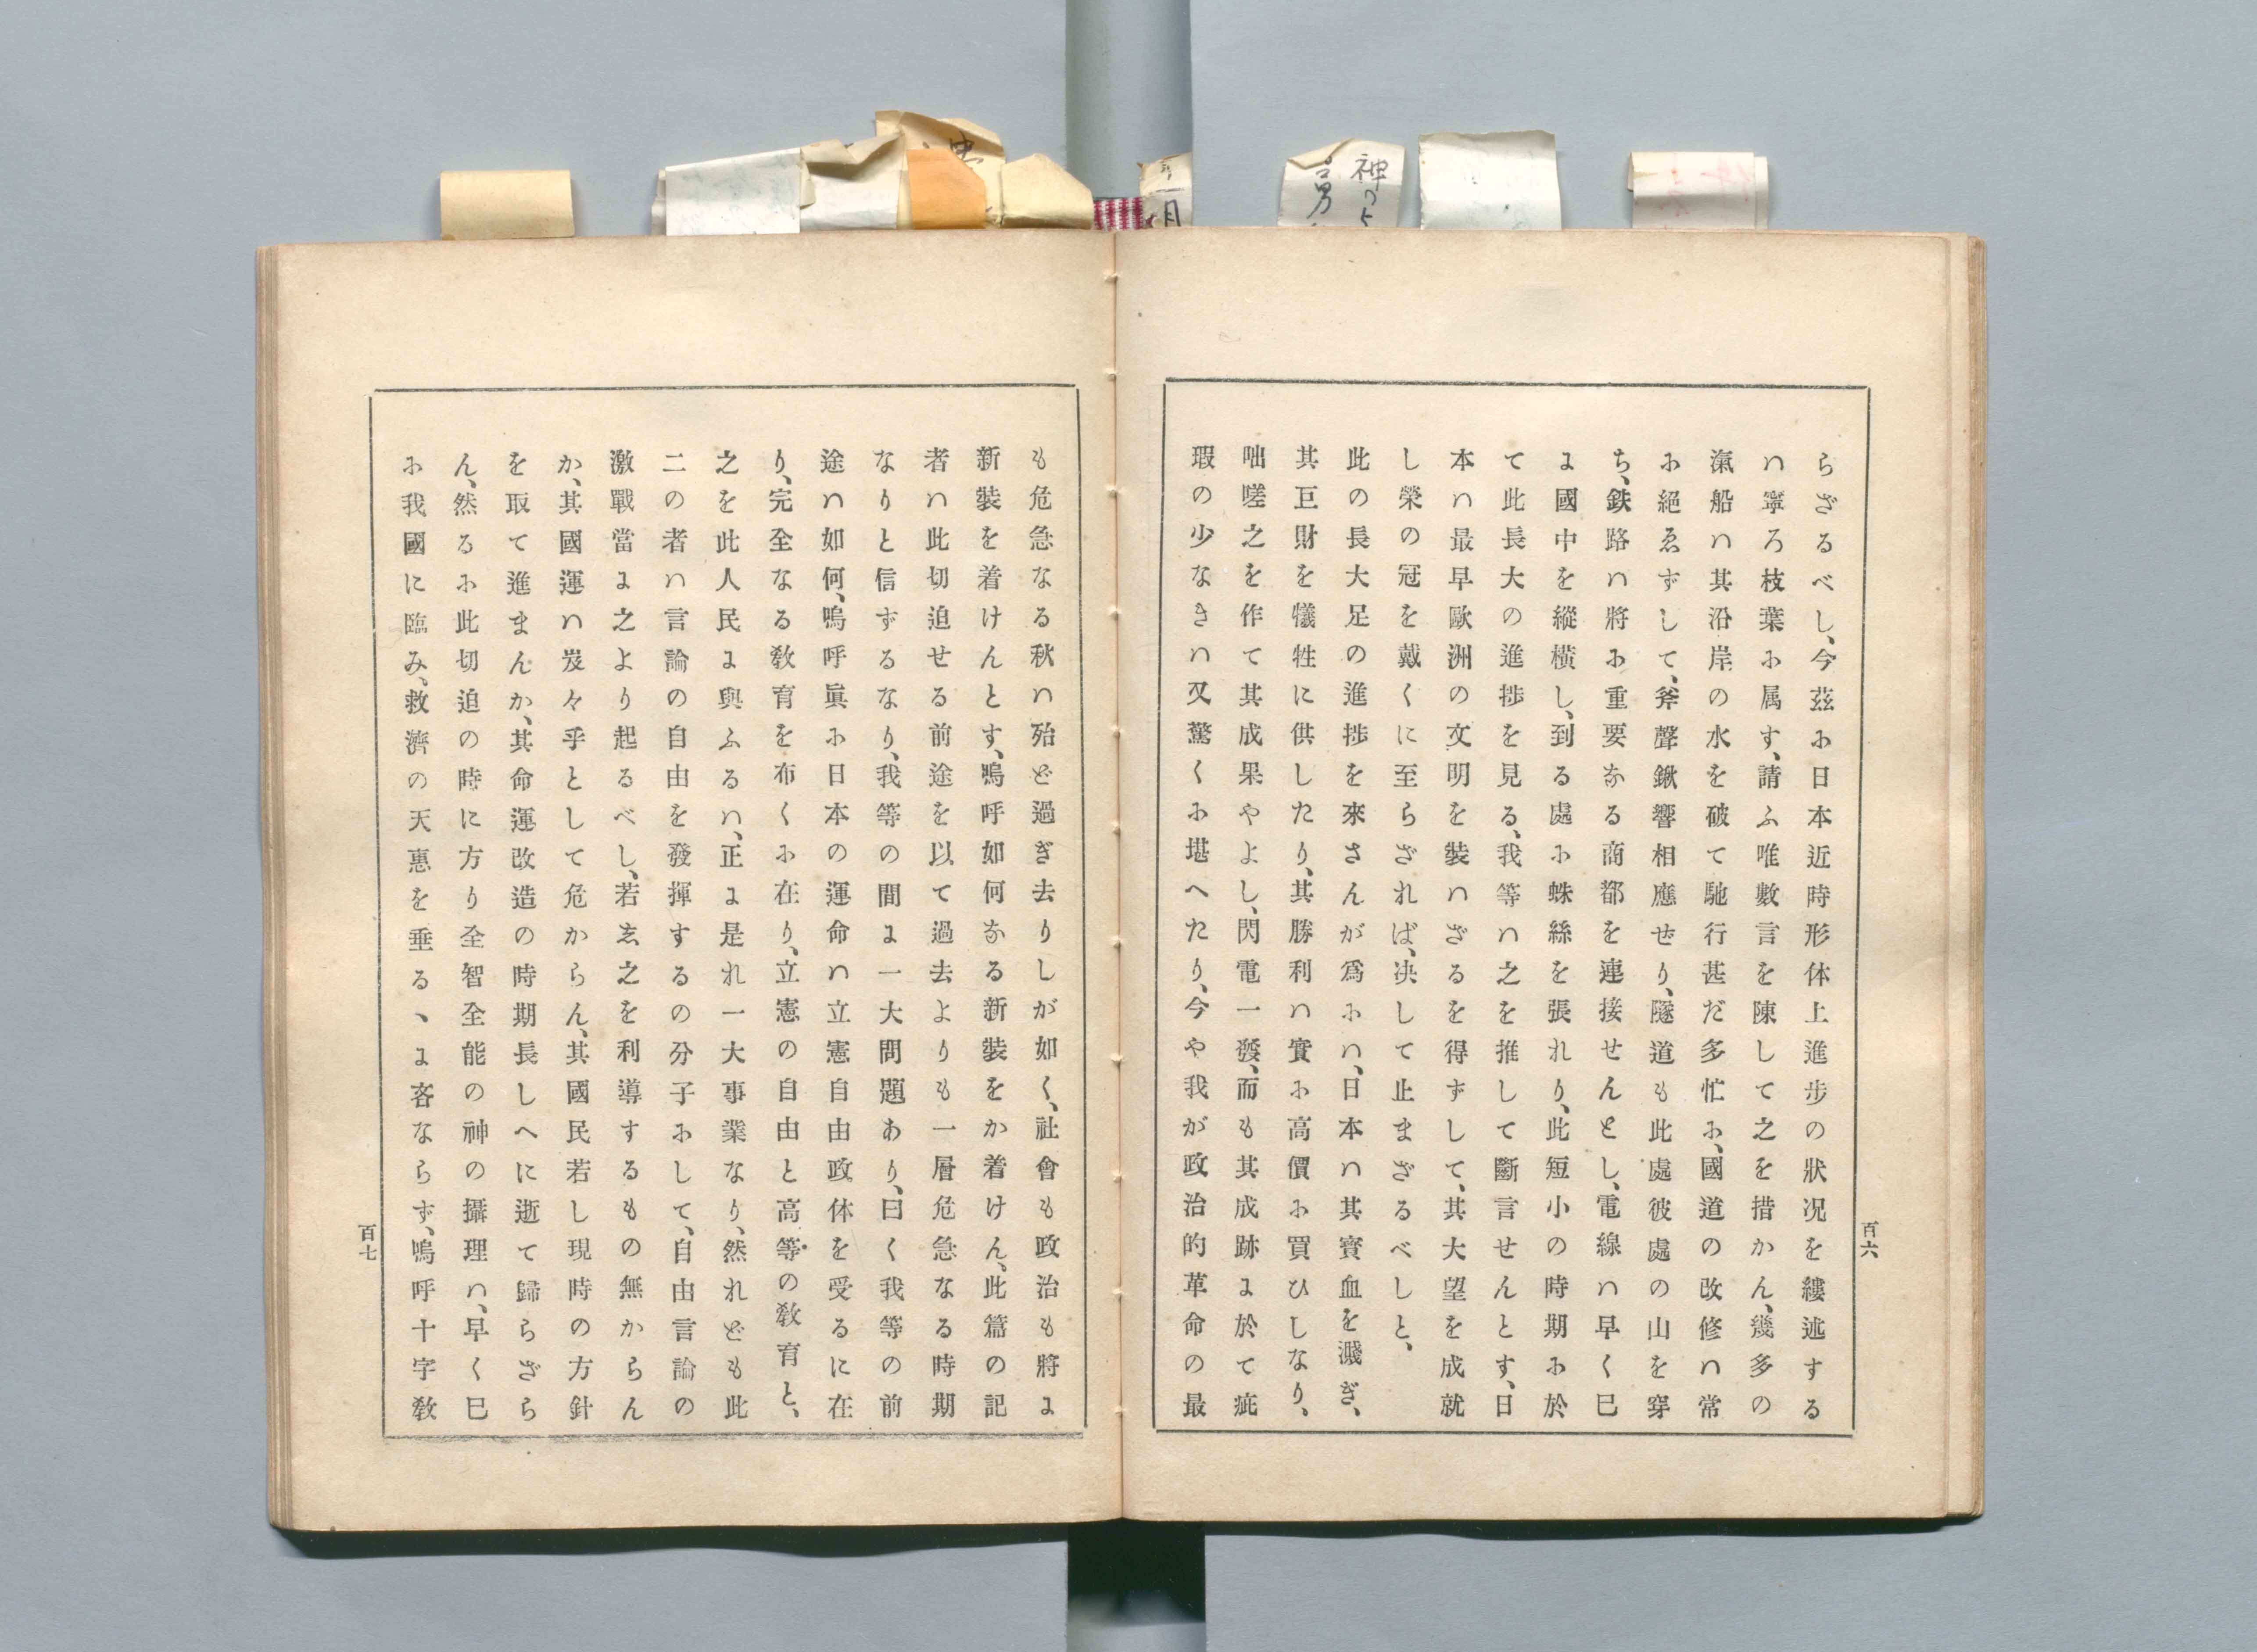 らざるべし、今茲に日本近時形体上進歩の狀况を縷述する
ハ寧ろ枝葉に属す、請ふ唯數言を陳して之を措かん、幾多の
滊船ハ其沿岸の水を破て馳行甚だ多忙に、國道の改修ハ常
に絕ゑずして、斧聲鍬響相應せり、隧道も此處彼處の山を穿
ち、鉄路ハ將に重要なる商都を連接せんとし、電線ハ早く已
に國中を縱橫し、到る處に蛛絲を張れり、此短小の時期に於
て此長大の進捗を見る、我等ハ之を推して斷言せんとす、日
本ハ最早歐洲の文明を裝ハざるを得ずして、其大望を成就
し榮の冠を戴くに至らざれば、决して止まざるべしと、
此の長大足の進捗を來さんが爲にハ、日本ハ其寶血を濺ぎ、
其巨財を犧牲に供したり、其勝利ハ實に高價に買ひしなり、
咄嗟之を作て其成果やよし、閃電一發、而も其成跡に於て疵
瑕の少なきハ又驚くに堪へたり、今や我が政治的革命の最
百六
も危急なる秋ハ殆ど過ぎ去りしが如く、社會も政治も將に
新裝を着けんとす、嗚呼如何なる新裝をか着けん、此篇の記
者ハ此切迫せる前途を以て過去よりも一層危急なる時期
なりと信ずるなり、我等の間に一大問題あり、曰く我等の前
途ハ如何、嗚呼眞に日本の運命ハ立憲自由政体を受るに在
り、完全なる敎育を布くに在り、立憲の自由と高等の敎育と、
之を此人民に與ふるハ、正に是れ一大事業なり、然れども此
二の者ハ言論の自由を發揮するの分子にして、自由言論の
激戰當に之より起るべし、若し之を利導するもの無からん
か、其國運ハ岌々乎として危からん、其國民若し現時の方針
を取て進まんか、其命運改造の時期長しへに逝て歸らざら
ん、然るに此切迫の時に方り全智全能の神の攝理ハ、早く已
に我國に臨み、救濟の天惠を垂るゝに吝ならず、嗚呼十字敎
百七
神の